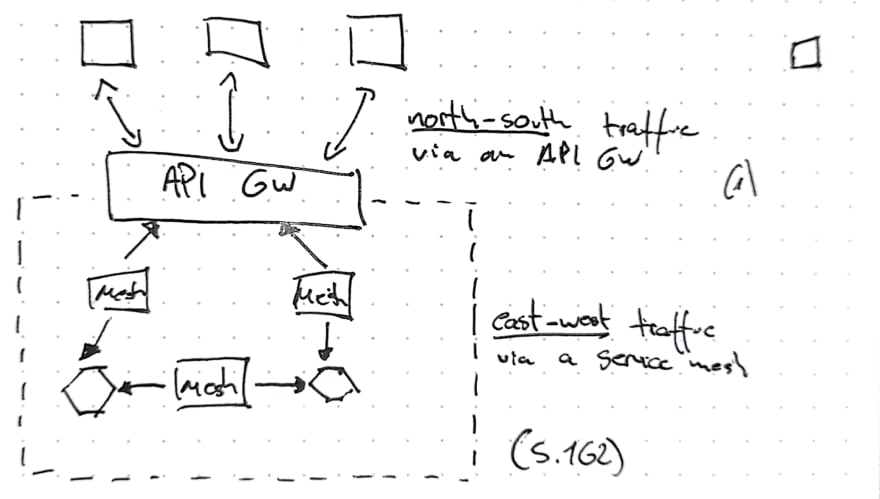 north-south traffic
via an API GW
API GW
Mesh
Mesh
east-west traffic
via a service mesh
Mesh
(S.162)